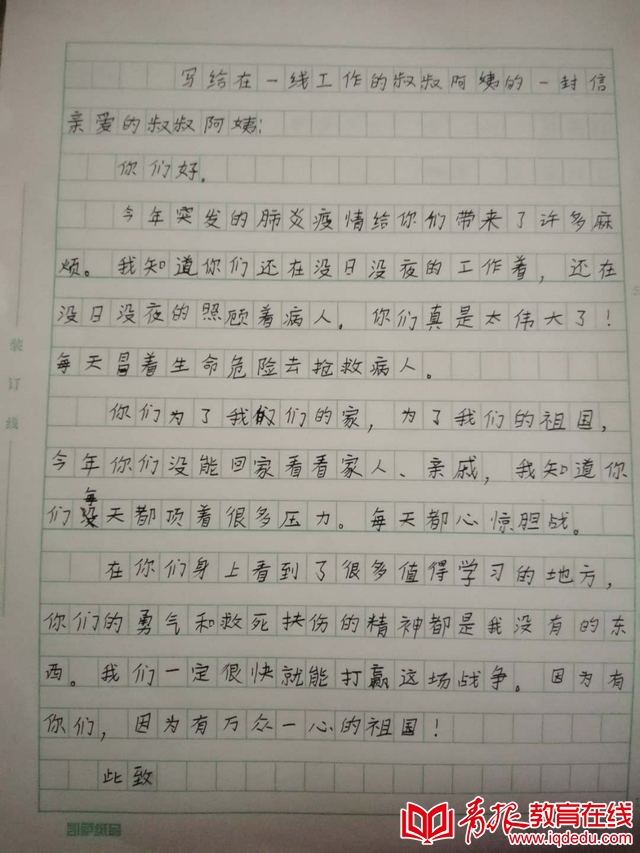 写给在一线工作的叔叔阿姨的一封信
亲爱的叔叔阿姨:
你们好.
今年突发的肺炎疫情给你们带来了许多麻
烦。我知道你们还在没日没夜的工作着,还在
没日没夜的照顾着病人.你们真是太伟大了!
每天冒着生命危险去抢救病人。
你们为了我们的家,为了我们的祖国,
今年你们没能回家看看家人、亲戚,我知道你
们每天都顶着很多压力。每天都心惊胆战。
在你们身上看到了很多值得学习的地方,
你们的勇气和救死扶伤的精神都是我没有的东
西。我们一定很快就能打赢这场战争。因为有
你们,因为有万众一心的祖国!
此致
装订线
凯萨纸品
青报教育在线
www.iqdedu.com